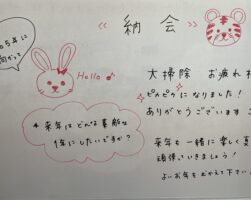 納会
Hello♪
大掃除 お疲れ
ピカピカになりました!
ありがとうございます
来年はどんな素敵な
1年にしたいですか?
来年も一緒に楽しく
頑張っていきましょう!
よいお年をむかえて下さい